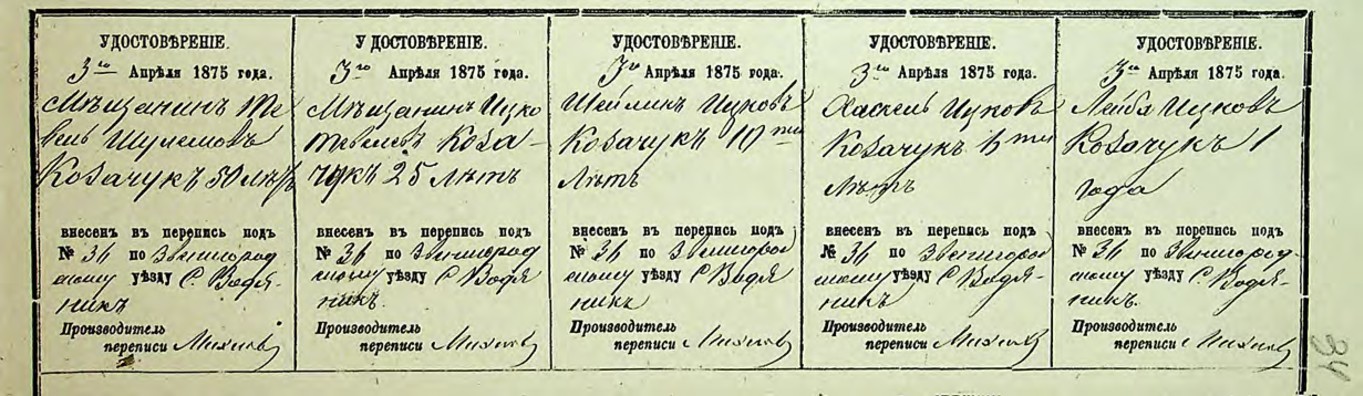 УДОСТОВѢРЕНІЕ.
3го Апрѣля 1875 года.
Мѣщанинъ Те
вель Шулемовъ
Козачукъ 50 лѣтъ
внесенъ въ перепись подъ
№ 36 по Звенигород
скому уѣзду С. Водя-
никъ
Производитель
переписи
УДОСТОВѢРЕНІЕ.
3го Апрѣля 1875 года.
Мѣщанинъ Ицко
Тевелевъ Коза-
чукъ 25 лѣтъ
внесенъ въ перепись подъ
№ 36 по Звенигород
скому уѣзду С. Водя
никъ.
Производитель
переписи
УДОСТОВѢРЕНІЕ.
3го Апрѣля 1875 года.
Ицковъ
Козачукъ
лѣтъ
внесенъ въ перепись подъ
№ 36 по Звенигород
скому уѣзду С. Водя
никъ
Производитель
переписи
УДОСТОВѢРЕНІЕ.
3го Апрѣля 1875 года.
Хаскель Ицковъ
Козачукъ
лѣтъ
внесенъ въ перепись подъ
№ 36 по Звенигород
скому уѣзду С. Водя-
никъ
Производитель
переписи
УДОСТОВѢРЕНІЕ.
3го Апрѣля 1875 года.
Лейба Ицковъ
Козачукъ 1
года
внесенъ въ перепись подъ
№ 36 по Звенигород-
скому уѣзду С. Водя-
никъ.
Производитель
переписи
34